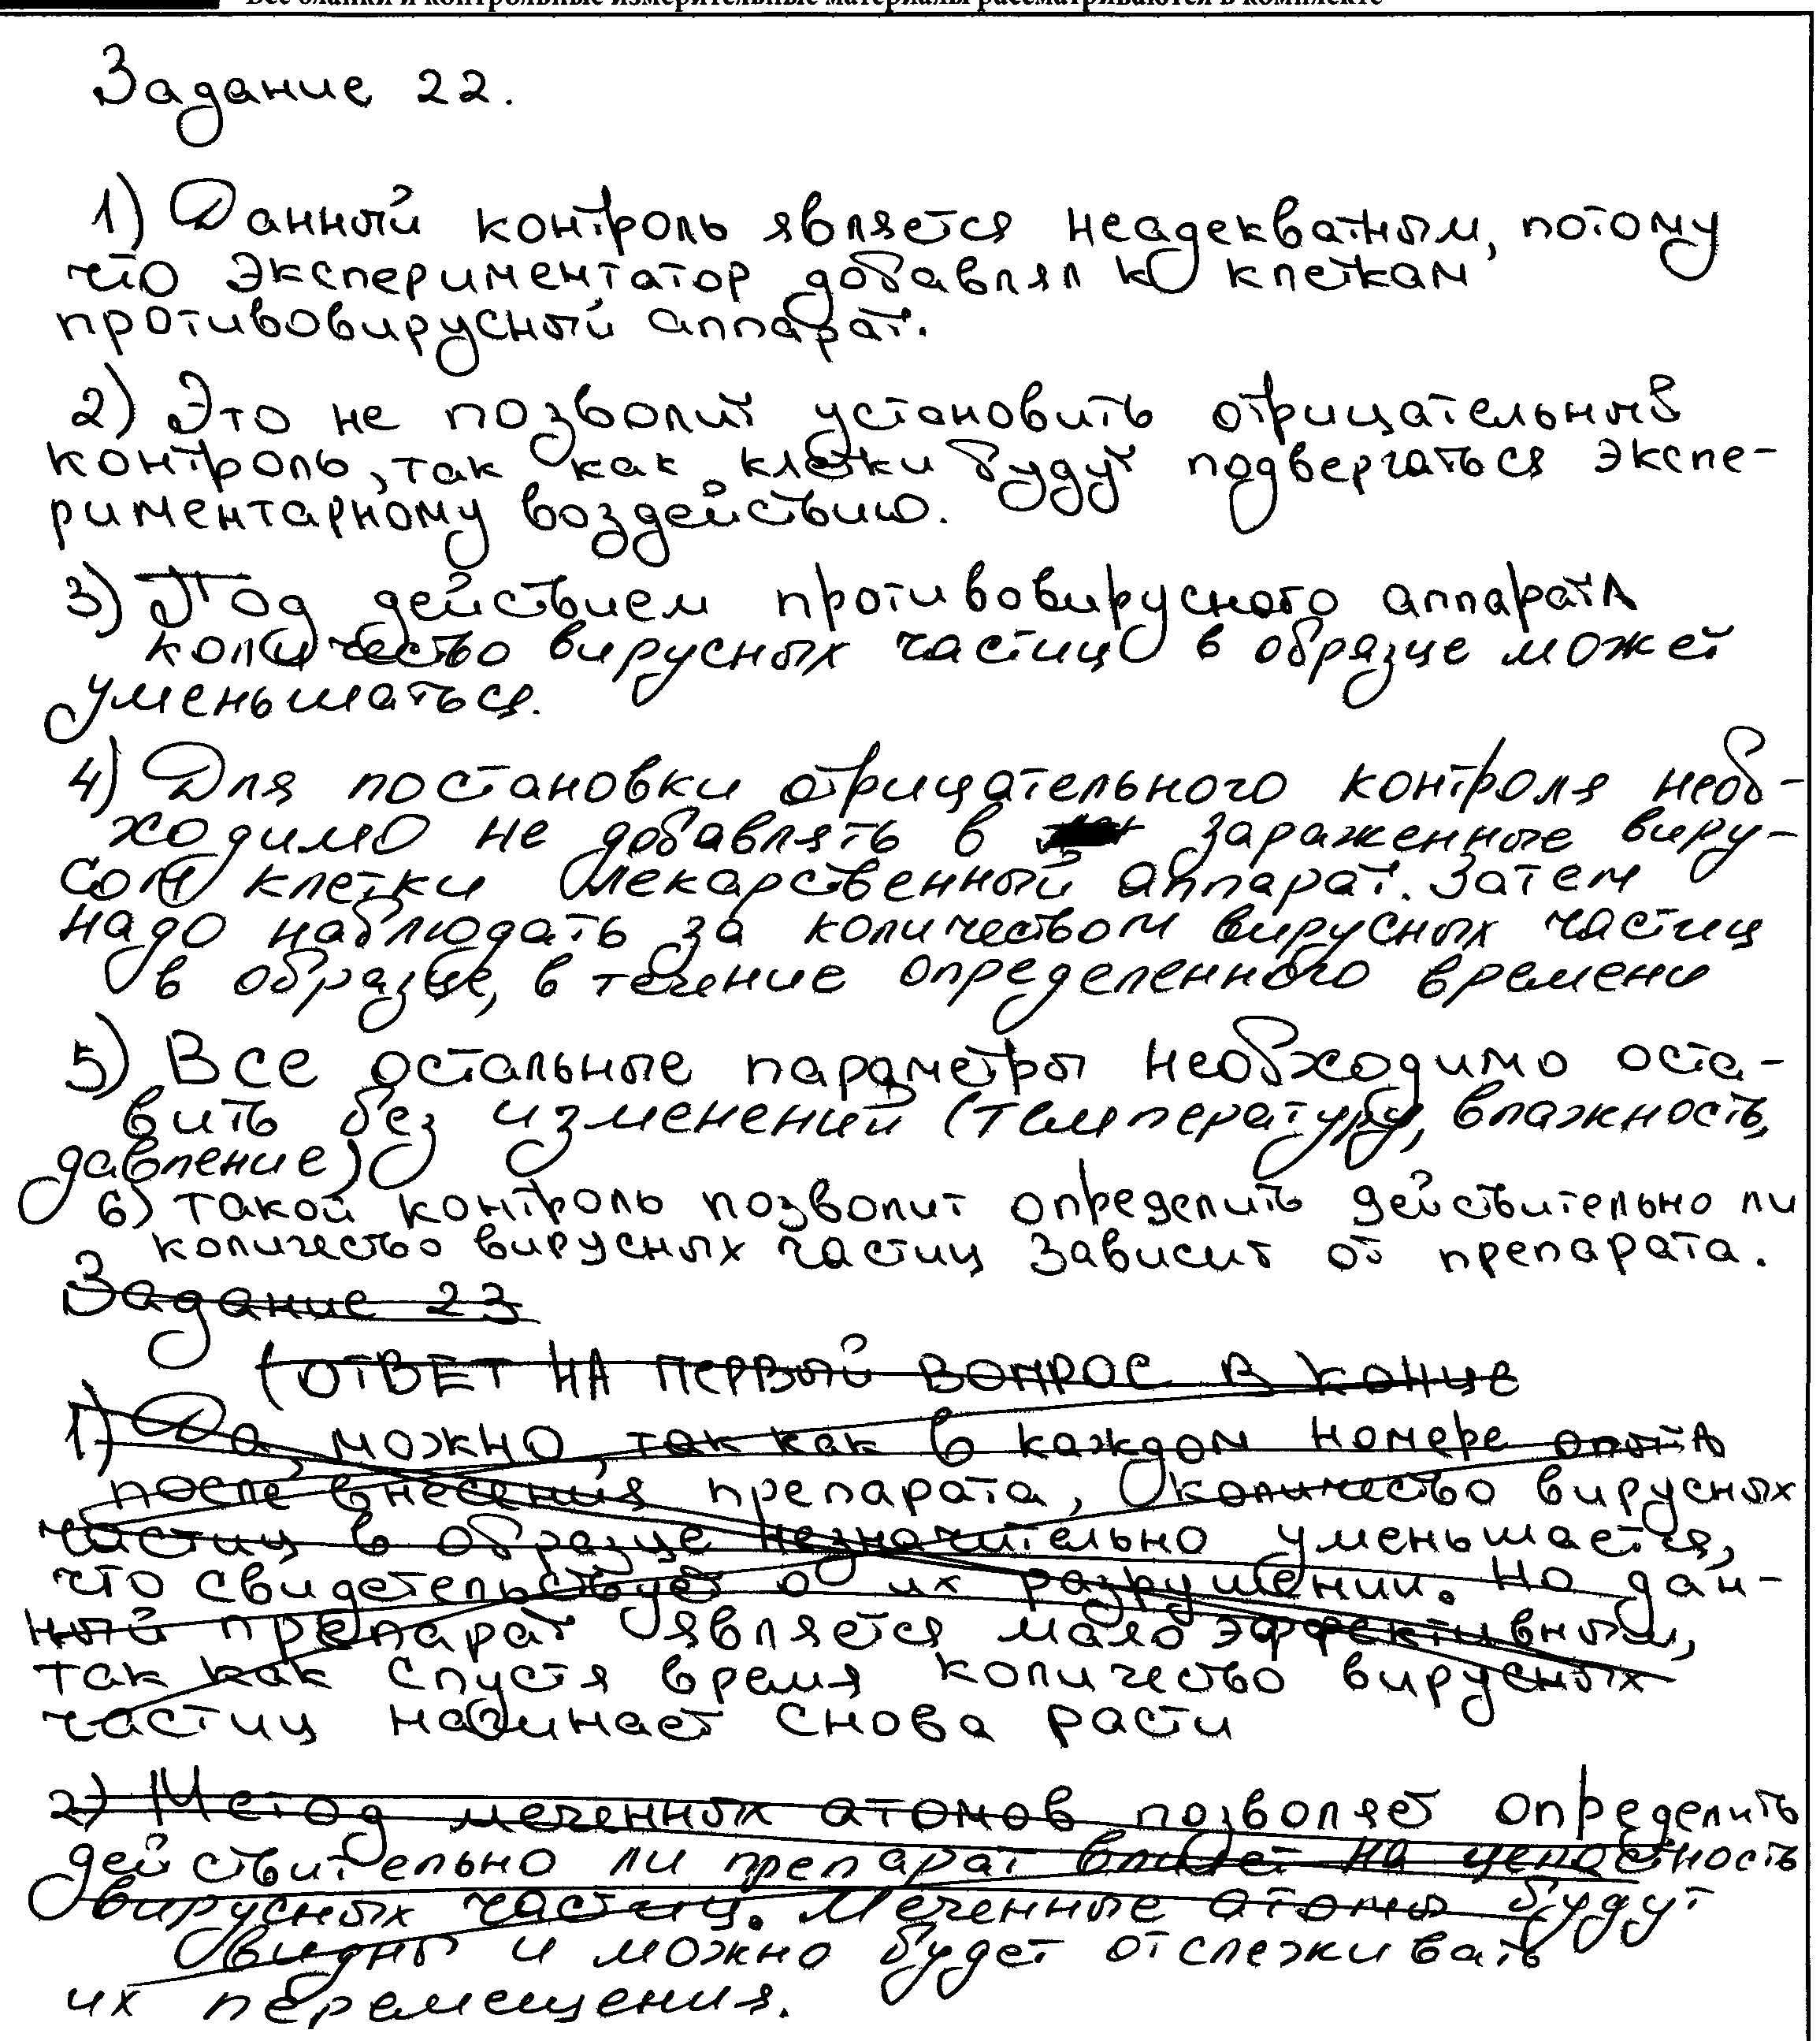 Все бланки и контрольные измерительные материалы рассматриваются в комплекте
Задание 22.
1) Данный контроль является неадекватным, потому
что экспериментатор добавлял к клеткам
противовирусный аппарат.
2) Это не позволит установить отрицательный
контроль, так как клетки будут подвергаться экспе-
риментарному воздействию.
3) Под действием противовирусного аппарата
количество вирусных частиц в образце может
уменьшаться.
4) Для постановки отрицательного контроля необ-
ходимо не добавлять в зараженные виру-
сом клетки лекарственный аппарат. Затем
надо наблюдать за количеством вирусных частиц
в образце, в течение определенного времени
5) Все остальные параметры необходимо оста-
вить без изменений (температуру, влажность,
давление)
6) Такой контроль позволит определить действительно ли
количество вирусных частиц зависит от препарата.
Задание 23
(ОТВЕТ НА ПЕРВЫЙ ВОПРОС В КОНЦЕ
1) Да, можно, так как в каждом номере опыта
после внесения препарата, количество вирусных
частиц в образце незначительно уменьшается,
что свидетельствует о их разрушении. Но дан-
ный препарат является мало эффективным,
так как спустя время количество вирусных
частиц начинает снова расти
2) Метод меченных атомов позволяет определить
действительно ли препарат влияет на целостность
вирусных частиц. Меченные атомы будут
видны и можно будет отслеживать
их перемещения.